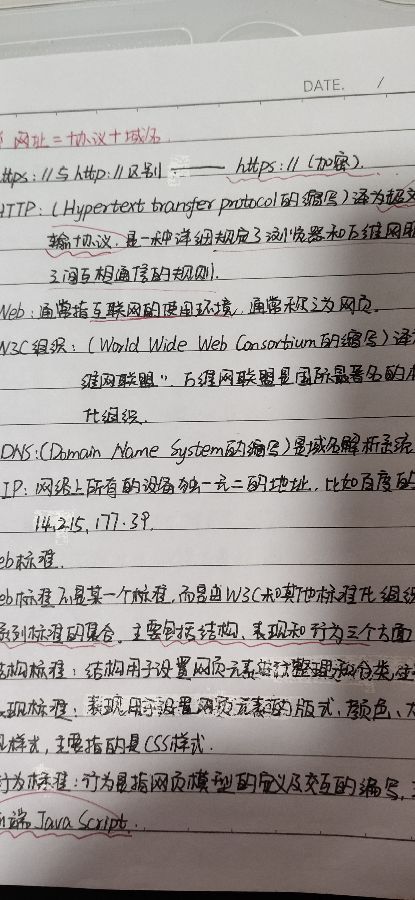 DATE. /
网址=协议+域名
ttps://与http://区别: —— https://(加密).
HTTP:(Hypertext transfer protocol的缩写)译为超文
输协议,是一种详细规定了浏览器和万维网服
之间互相通信的规则.
Web:通常指互联网的使用环境,通常称之为网页.
W3C组织:(World Wide Web Consortium的缩写)译
维网联盟",万维网联盟是国际最著名的
化组织.
DNS:(Domain Name System的缩写)是域名解析系统
IP:网络上所有的设备独一无二的地址,比如百度的
14.215.177.39.
eb标准.
eb标准不是某一个标准,而是由W3C和其他标准化组织
系列标准的集合.主要包括结构、表现和行为三个方面
结构标准:结构用于设置网页元素进行整理和分类,
现标准:表现用于设置网页元素的版式、颜色、大
见样式,主要指的是CSS样式.
行为标准:行为是指网页模型的定义及交互的编写,
端JavaScript.